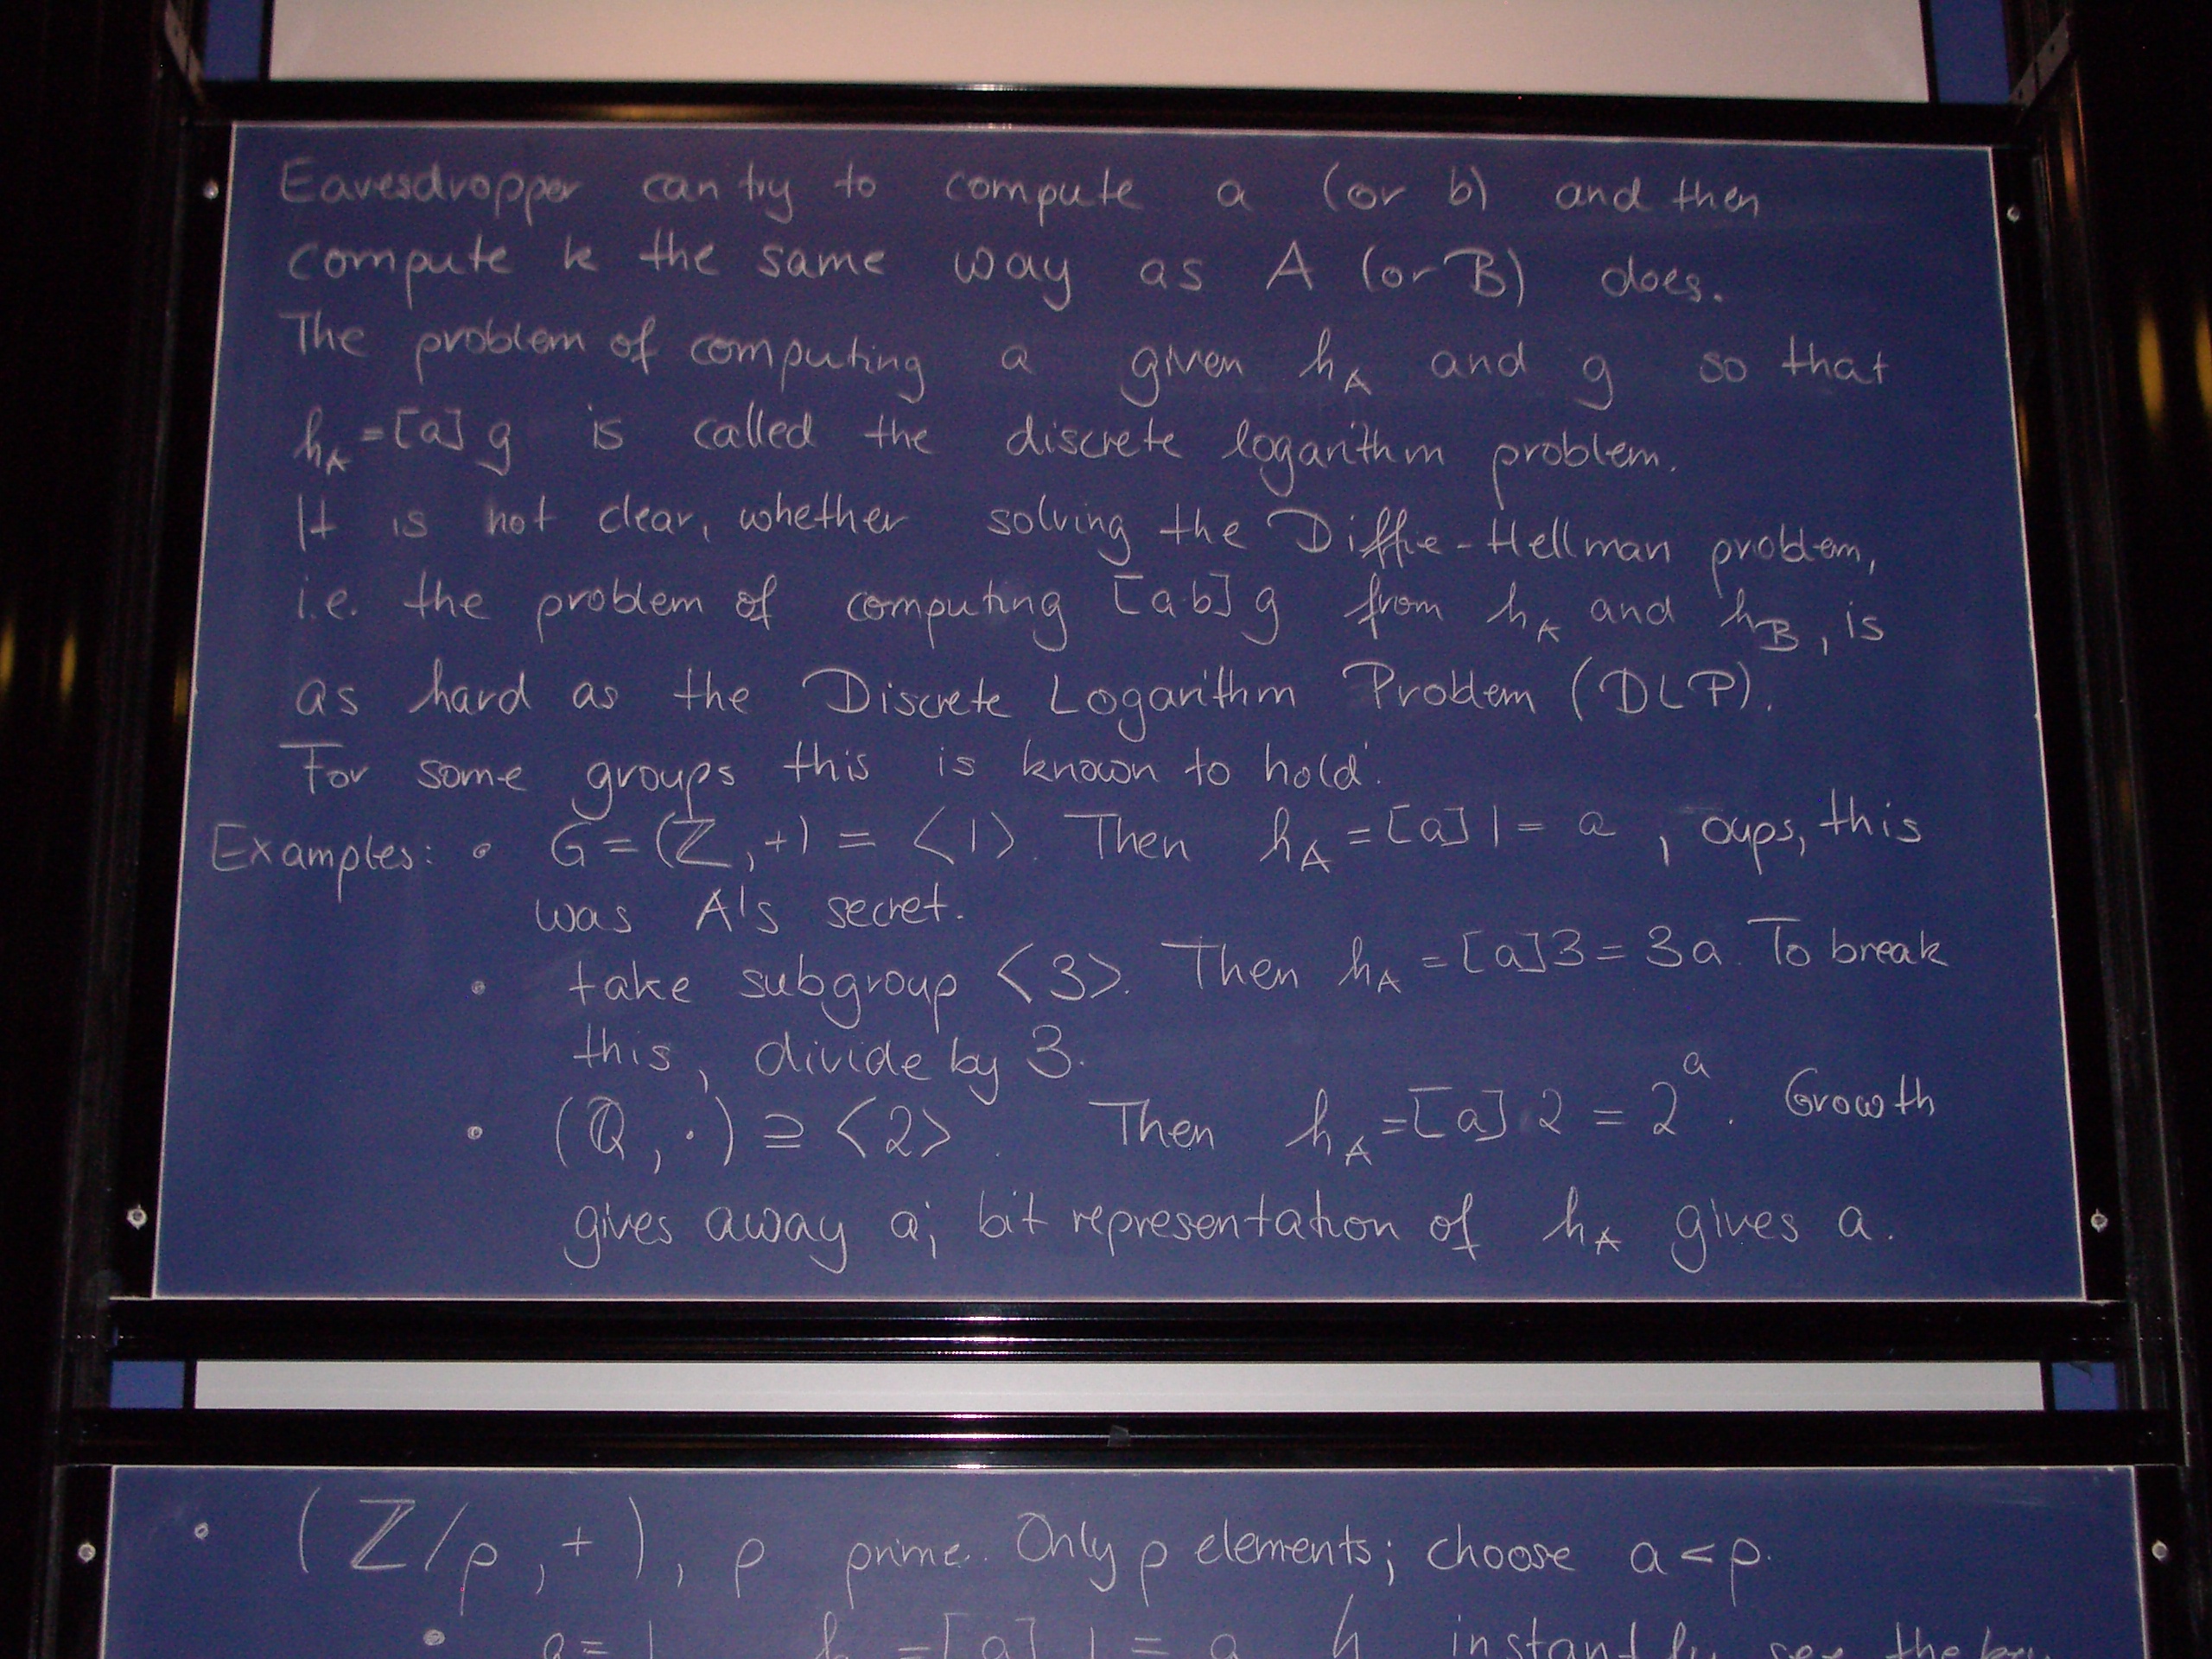 Eavesdropper can try to compute a (or b) and then
compute k the same way as A (or B) does.
The problem of computing a given h_A and g so that
h_A = [a] g is called the discrete logarithm problem.
It is not clear, whether solving the Diffie-Hellman problem,
i.e. the problem of computing [a·b] g from h_A and h_B, is
as hard as the Discrete Logarithm Problem (DLP).
For some groups this is known to hold.
Examples: • G = (Z, +) = <1>. Then h_A = [a] 1 = a, oups, this
was A's secret.
• take subgroup <3>. Then h_A = [a]3 = 3a. To break
this, divide by 3.
• (Q, ·) ⊇ <2>. Then h_A = [a] 2 = 2^a. Growth
gives away a; bit representation of h_A gives a.
• (Z/p, +), p prime. Only p elements; choose a < p.
• g = 1 h = [a] 1 = a instantly see the